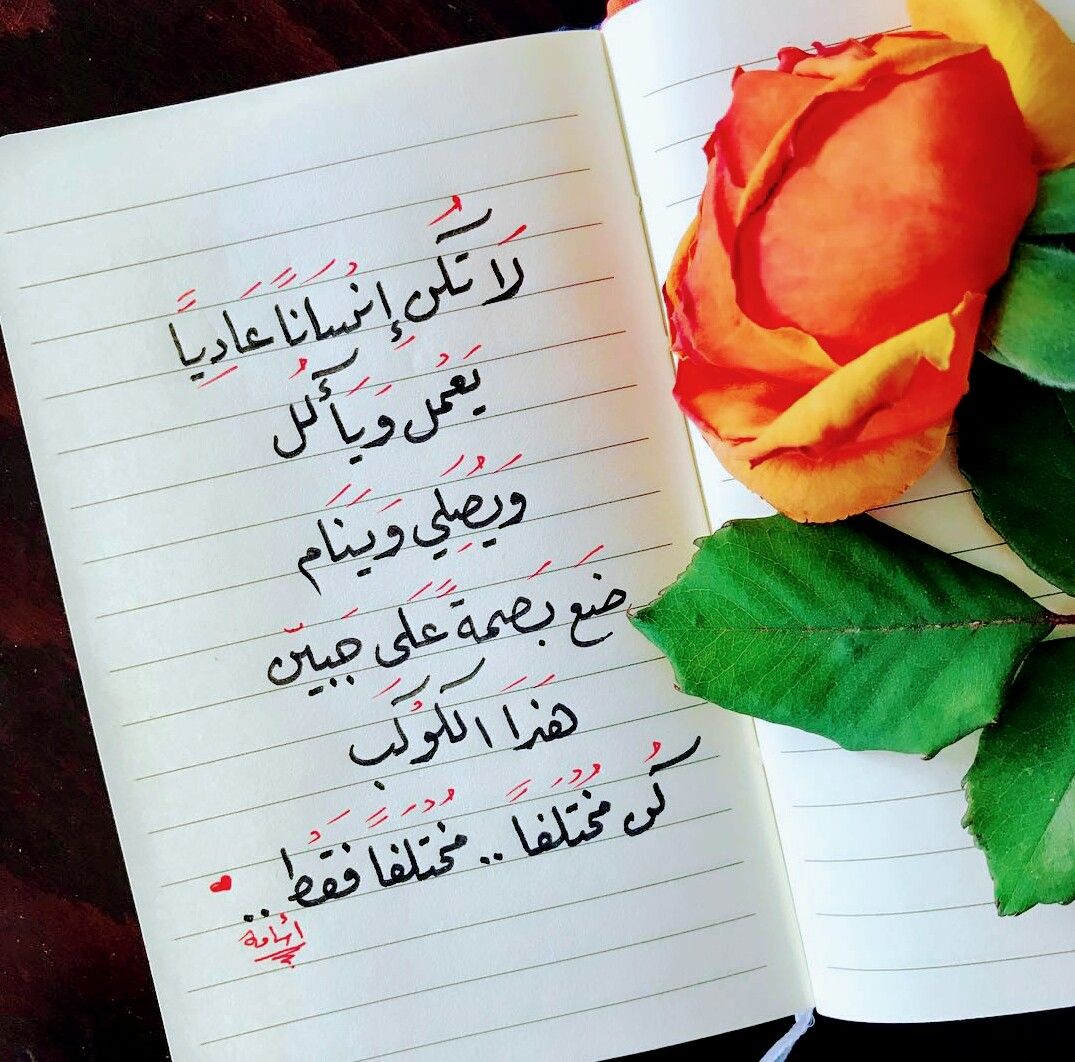 لَا تَكُن إِنْسَانًا عَادِيًّا
يَعْمل وَيَأكُل
وَيُصَلِي وَيَنَام
ضَع بَصمةً عَلَى جَبين
هَذَا الكَوكَب
كُن مُخْتَلِفًا .. مُخْتَلِفًا فَقَطْ ..
أسامة